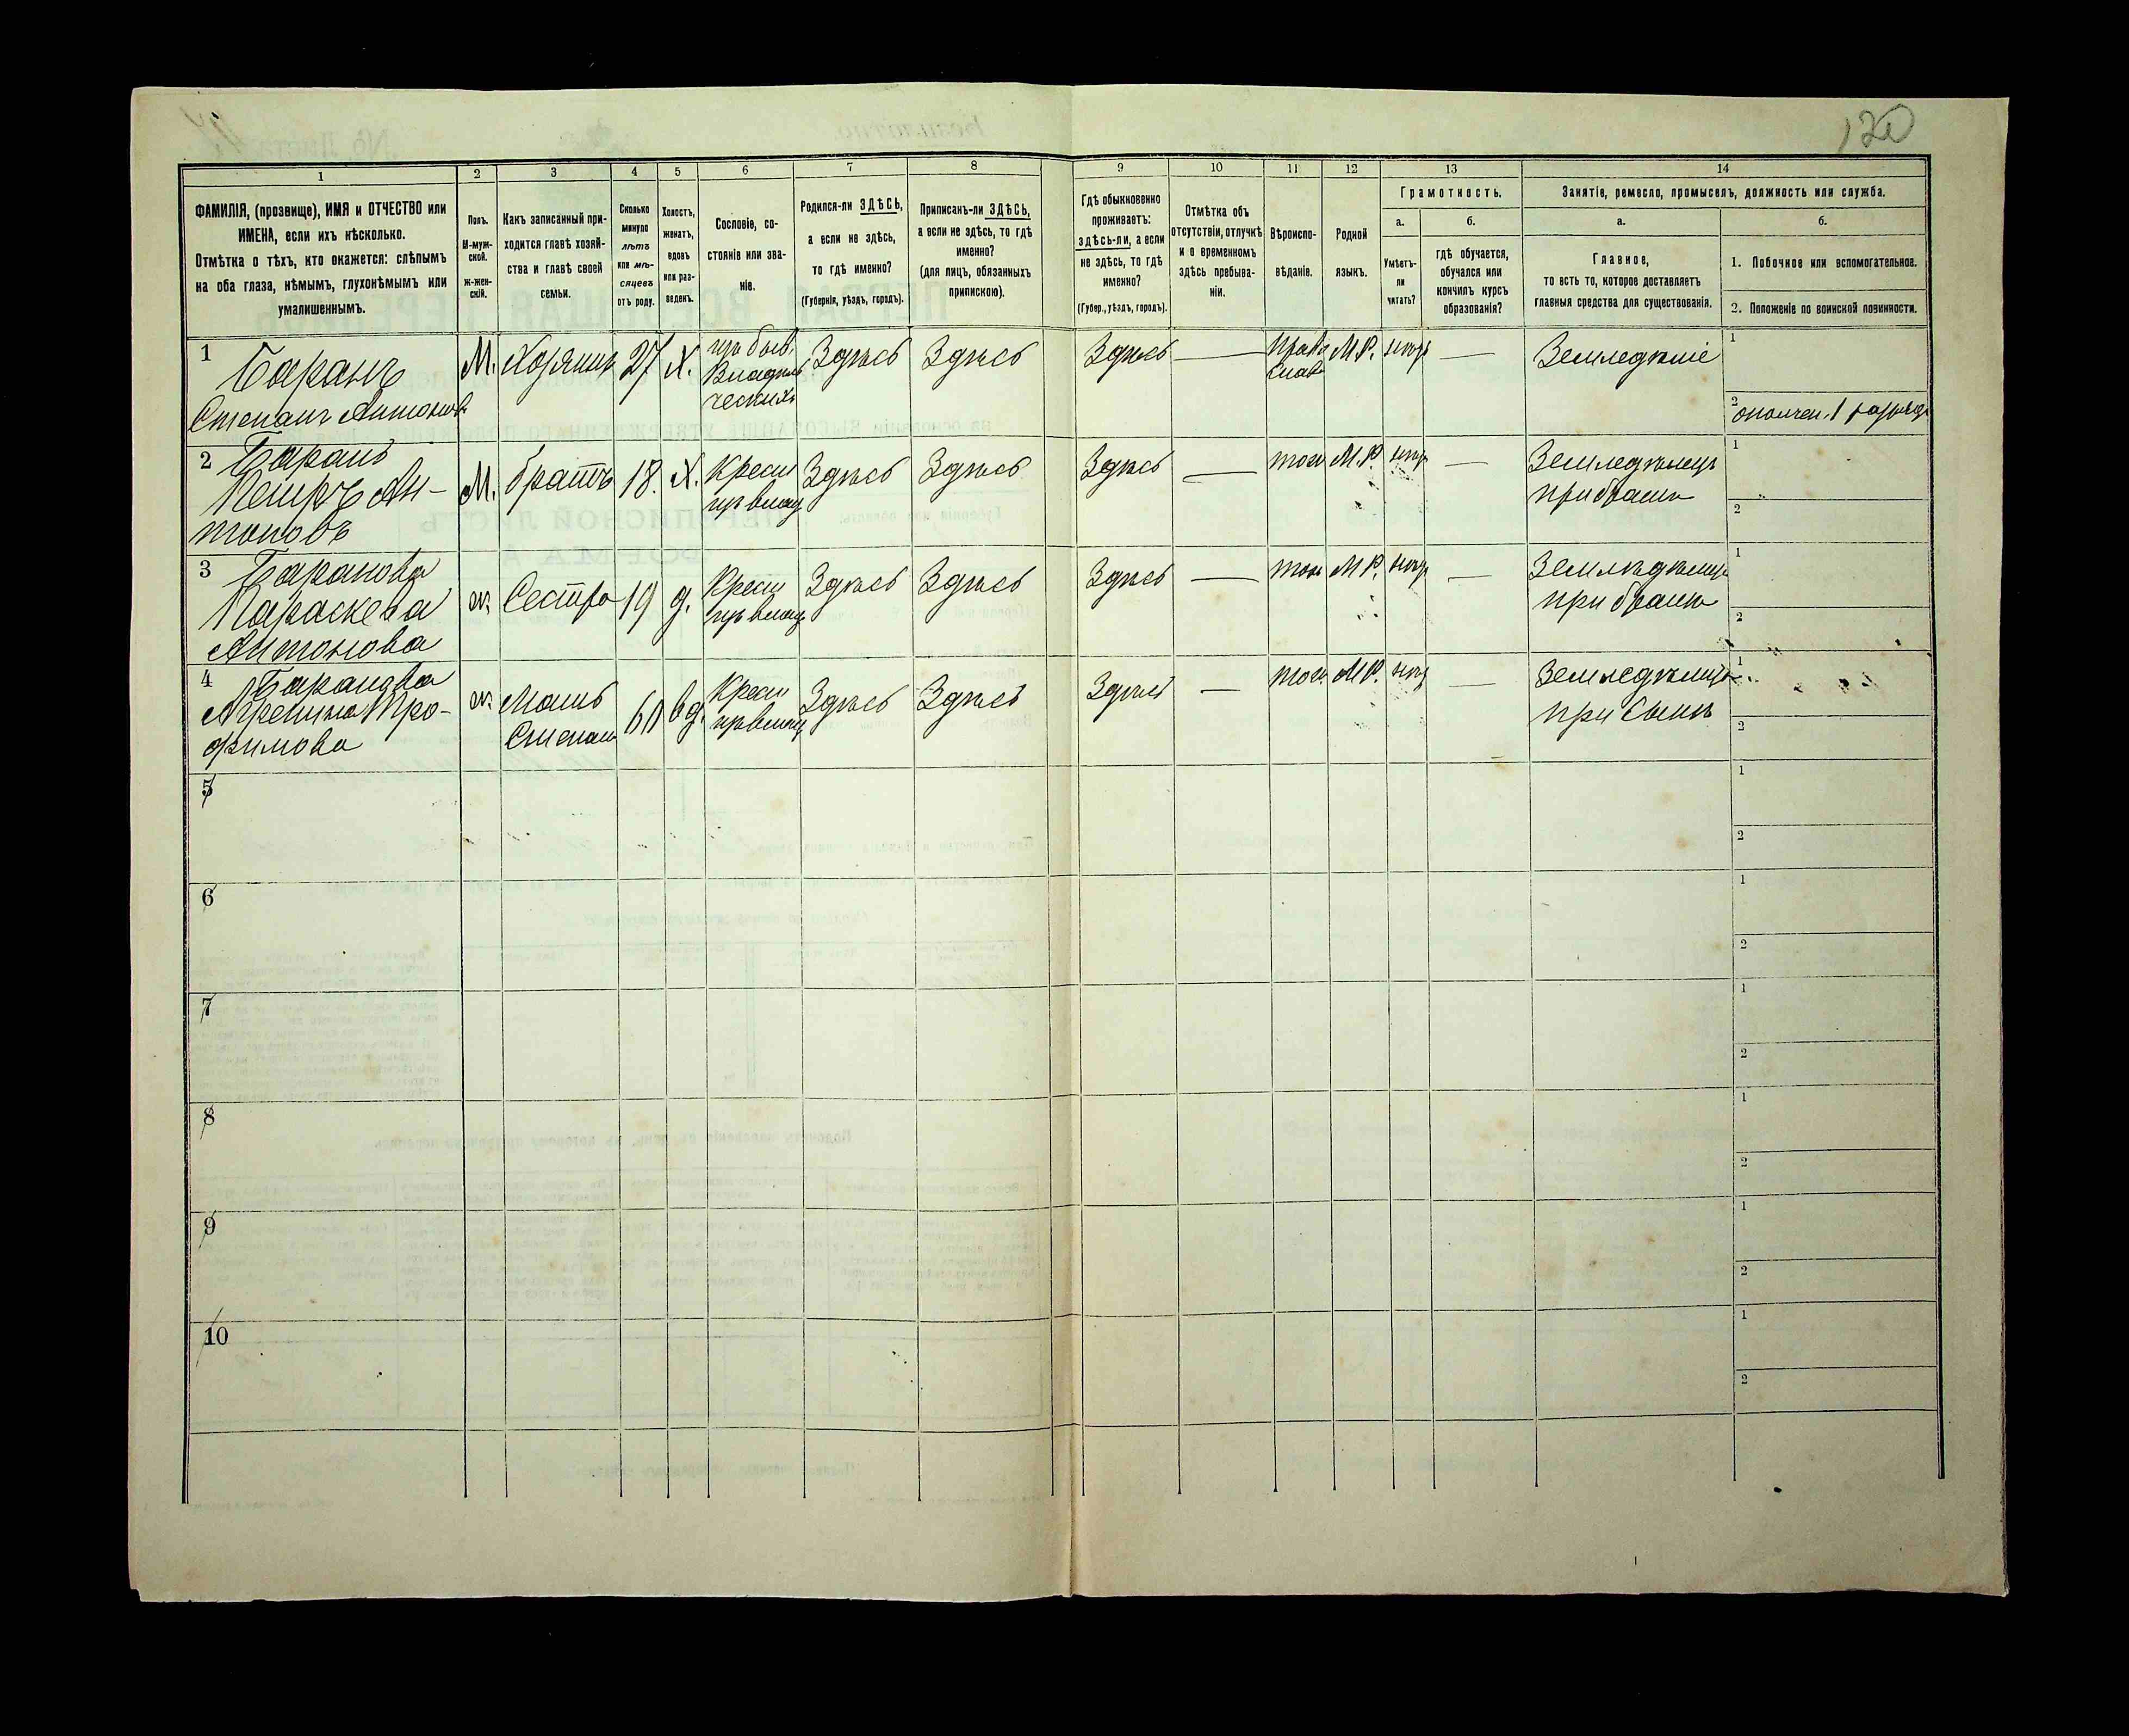 120
1 2 3 4 5 6 7 8 9 10 11 12 13 14
ФАМИЛІЯ, (прозвище), ИМЯ и ОТЧЕСТВО или
ИМЕНА, если ихъ нѣсколько.
Отмѣтка о тѣхъ, кто окажется: слѣпымъ
на оба глаза, нѣмымъ, глухонѣмымъ или
умалишеннымъ.
Полъ.
М-муж-
ской.
ж-жен-
скій.
Какъ записанный при-
ходится главѣ хозяй-
ства и главѣ своей
семьи.
Сколько
минуло
лѣтъ
или мѣ-
сяцевъ
отъ роду.
Холостъ,
женатъ,
вдовъ
или раз-
веденъ.
Сословіе, со-
стояніе или зва-
ніе.
Родился-ли ЗДѢСЬ,
а если не здѣсь,
то гдѣ именно?
(Губернія, уѣздъ, городъ).
Приписанъ-ли ЗДѢСЬ,
а если не здѣсь, то гдѣ
именно?
(для лицъ, обязанныхъ
припискою).
Гдѣ обыкновенно
проживаетъ:
здѣсь-ли, а если
не здѣсь, то гдѣ
именно?
(Губер., уѣздъ, городъ).
Отмѣтка объ
отсутствіи, отлучкѣ
и о временномъ
здѣсь пребыва-
ніи.
Вѣроиспо-
вѣданіе.
Родной
языкъ.
Грамотность.
а.
Умѣетъ-
ли
читать?
б.
гдѣ обучается,
обучался или
кончилъ курсъ
образованія?
Занятіе, ремесло, промыселъ, должность или служба.
а.
Главное,
то есть то, которое доставляетъ
главныя средства для существованія.
б.
1. Побочное или вспомогательное.
2. Положеніе по воинской повинности.
1 Баранъ
Степанъ Антоновъ
М. Хозяинъ 27 Х.
из быв.
Владѣль
ческихъ
Здѣсь Здѣсь Здѣсь —
Право
слав
М.Р. нѣтъ — Земледѣліе
1
2 ополчен. 1 разряд
2 Баранъ
Петръ Ан-
тоновъ
М. братъ 18. Х.
Крест
из влад
Здѣсь Здѣсь Здѣсь — тож М.Р. нѣтъ —
Земледѣлецъ
при братѣ
1
2
3 Баранова
Параскева
Антонова
ж. Сестра 19 д.
Крест
из влад
Здѣсь Здѣсь Здѣсь — тож М.Р. нѣтъ —
Земледѣлец
при братѣ
1
2
4 Баранова
Агрепина Тро-
фимова
ж. Мать
Степана
60 вд.
Крест
из влад
Здѣсь Здѣсь Здѣсь — тож М.Р. нѣтъ —
Земледѣлиц
при Сынѣ
1
2
5
1
2
6
1
2
7
1
2
8
1
2
9
1
2
10
1
2